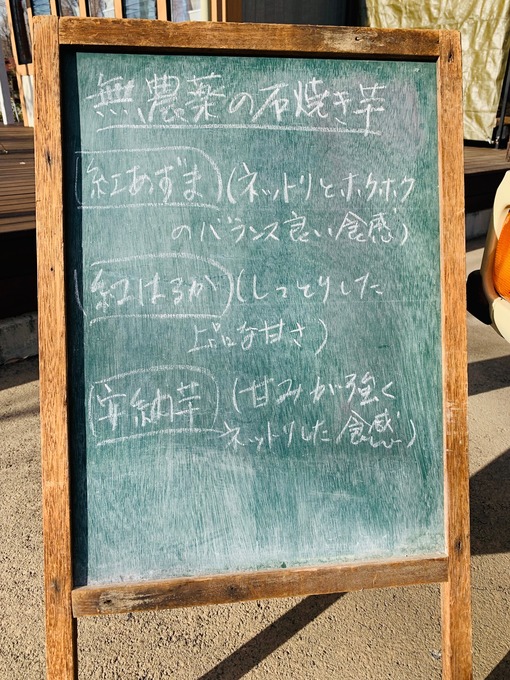 無農薬の石焼き芋
紅あずま (ネットリとホクホク
のバランス良い食感)
紅はるか (しっとりした
上品な甘さ)
安納芋 (甘みが強く
ネットリした食感)